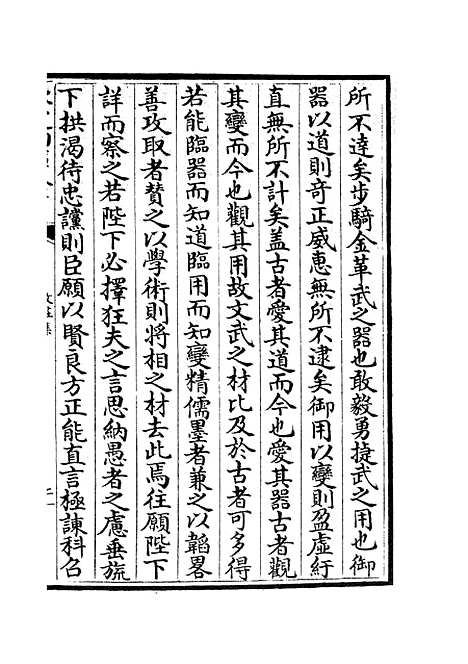 所不逹矣步騎金革武之器也敢毅勇捷武之用也御
器以道則竒正威惠無所不逮矣御用以變則盈虛紆
直無所不計矣盖古者愛其道而今也愛其器古者觀
其變而今也觀其用故文武之材比及於古者可多得
若能臨器而知道臨用而知變精儒墨者兼之以韜畧
善攻取者賛之以學術則將相之材去此焉往願陛下
詳而察之若陛下必擇狂夫之言思納愚者之慮垂旒
下拱渴待忠讜則臣願以賢良方正能直言極諫科召